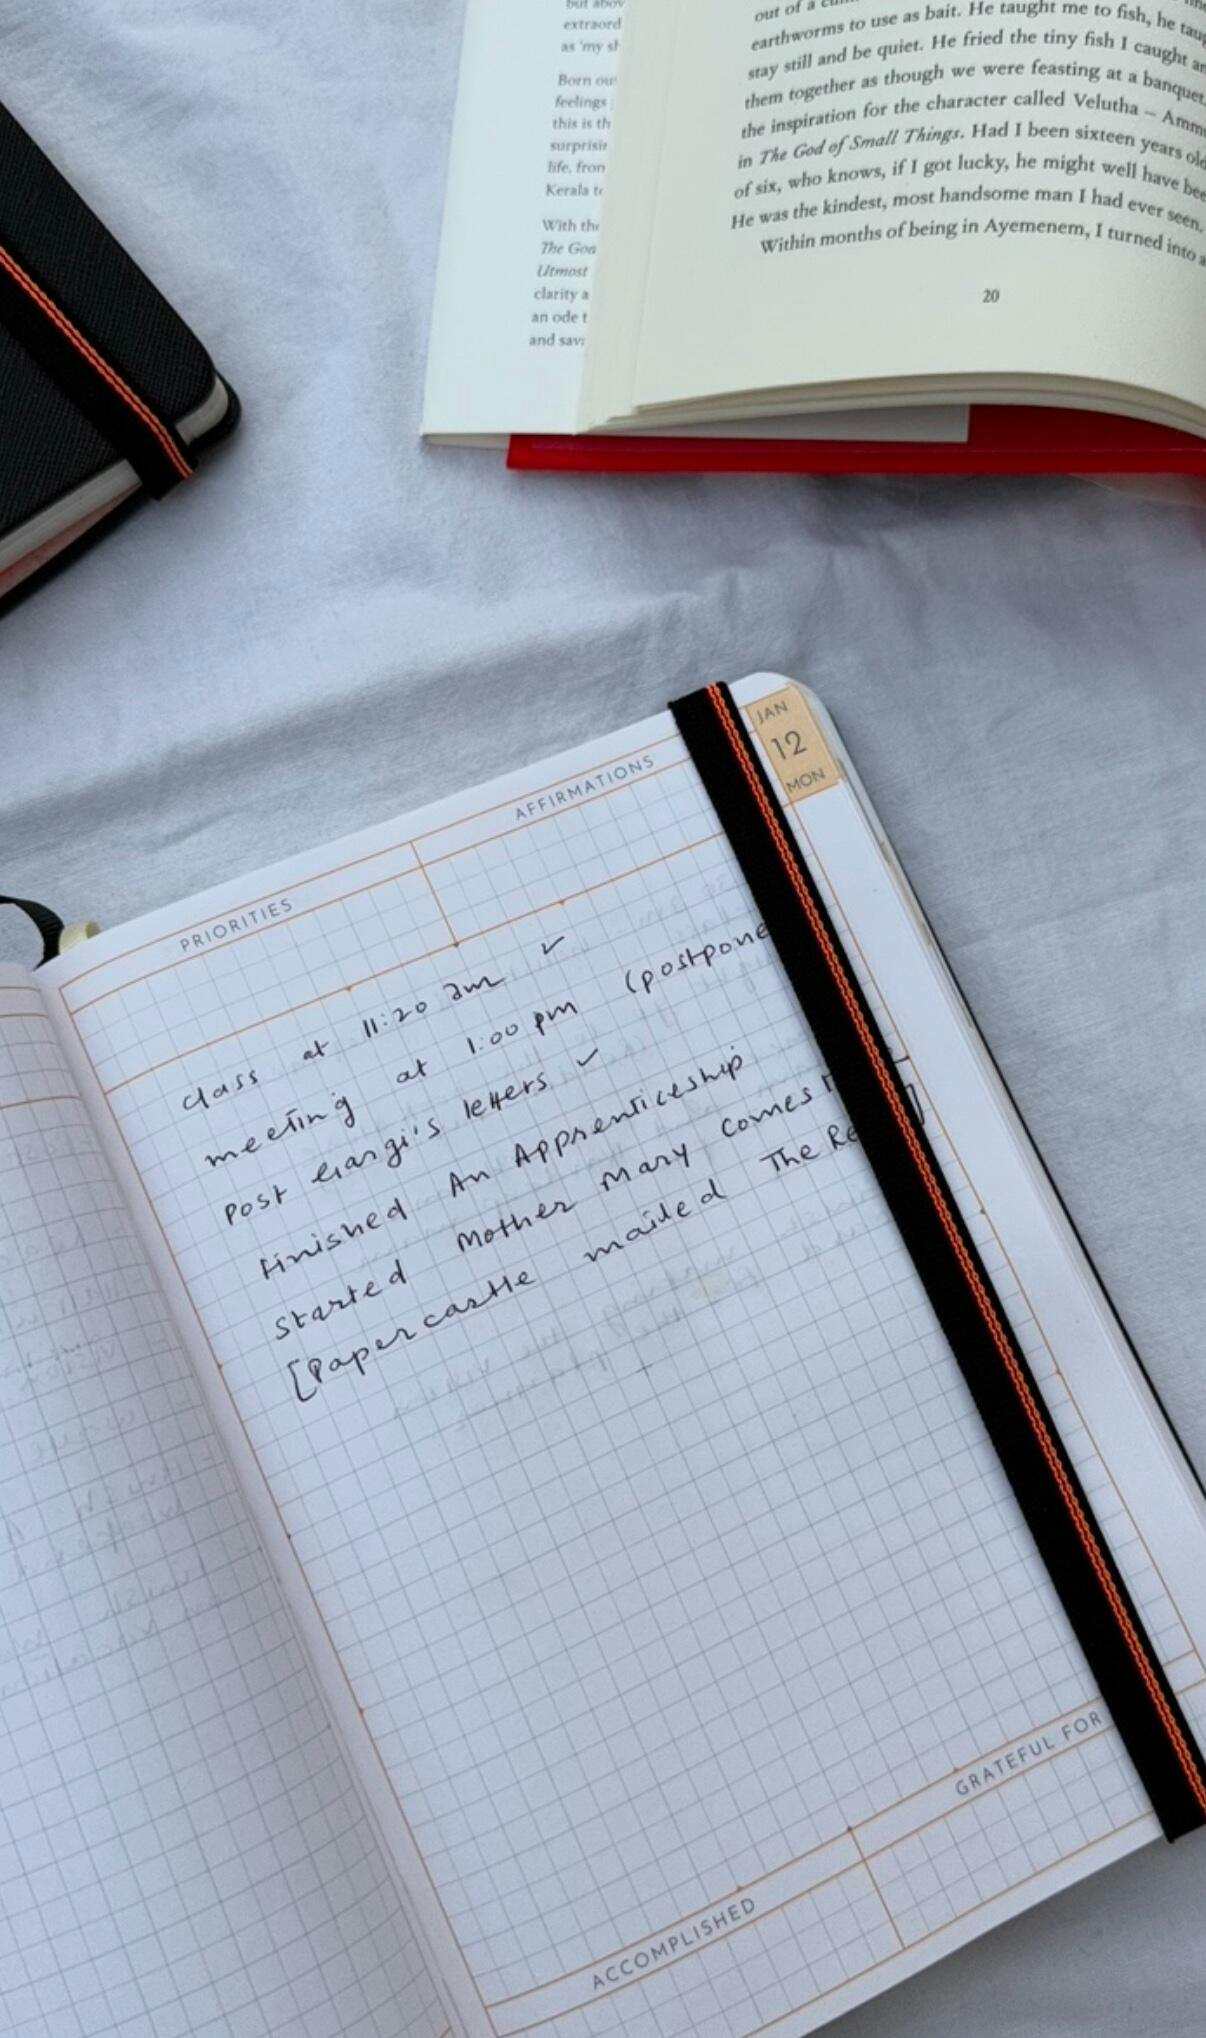 but abov
extraord
as 'my sh
Born ou
feelings
this is th
surprisin
life, from
Kerala to
With the
The God
Utmost
clarity a
an ode t
and sav
out of a
earthworms to use as bait. He taught me to fish, he taug
stay still and be quiet. He fried the tiny fish I caught an
them together as though we were feasting at a banquet.
the inspiration for the character called Velutha – Ammu
in The God of Small Things. Had I been sixteen years old
of six, who knows, if I got lucky, he might well have bee
He was the kindest, most handsome man I had ever seen.
Within months of being in Ayemenem, I turned into a
20
JAN
12
MON
PRIORITIES
AFFIRMATIONS
class at 11:20 am ✓
meeting at 1:00 pm (postpone
post Gargi's letters ✓
Finished An Apprenticeship
started Mother Mary comes
[Papercastle mailed The Re ]
GRATEFUL FOR
ACCOMPLISHED